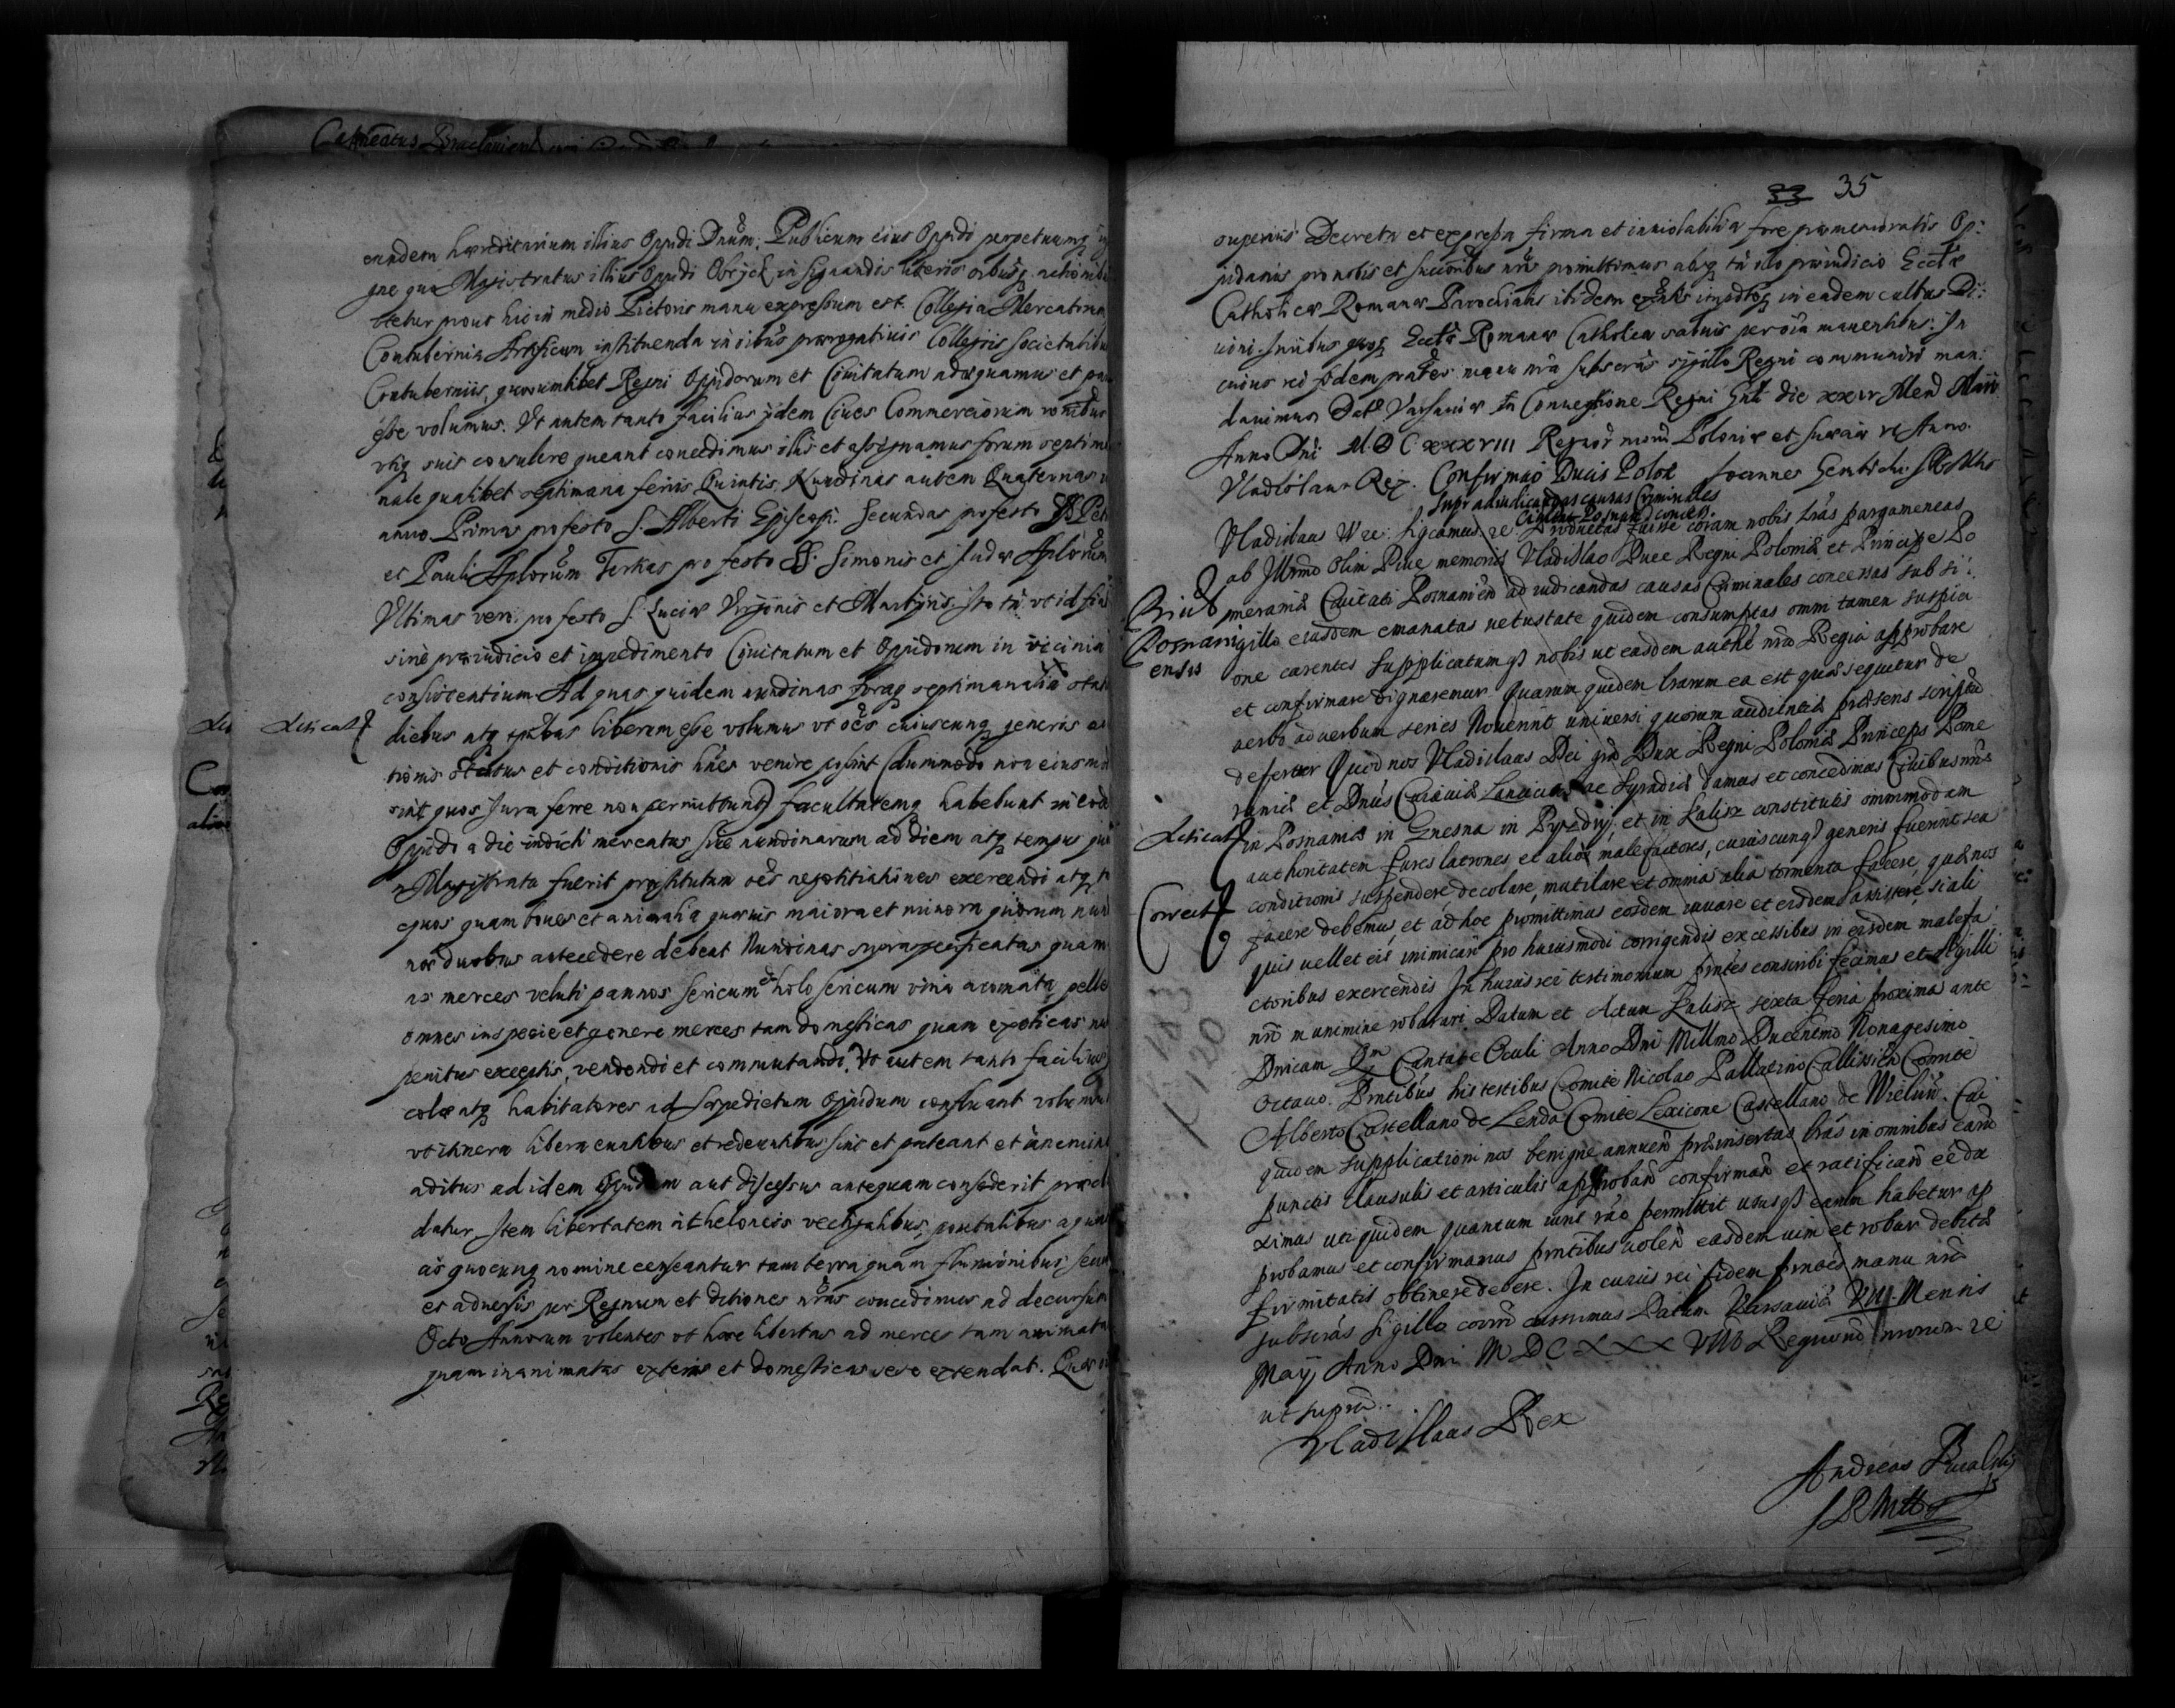 Capitaneatus Braclavien
eundem hæreditarium illius Oppidi Dnum. Publicum eius Oppidi perpetuumq
gne quo Magistratus illius Oppidi in signandis literis oibusq actionib
tetur prout hic in medio Pictoris manu expressum est. Collegia Mercatorum
Contubernia Artificum instituenda in oibus prærogativis Collegiis Societatibus
Contuberniis, quorumlibet Regni Oppidorum et Civitatum adæquamus et pa
esse volumus. Ut autem tanto facilius ijdem Cives Commerciorum
utiq suis consulere queant concedimus illis et assignamus forum septima
nale qualibet septimana feriis Quintis. Nundinas autem Quaternas
anno Primas profesto S. Alberti Episcopi. Secundas profesto SS. Petri
et Pauli Aplorum Tertias profesto SS. Simonis et Judæ Aplorum
Ultimas vero profesto S. Luciæ Virginis et Martyris. Ita tn ut id fiat
sine præiudicio et impedimento Civitatum et Oppidorum in vicinia
consistentium. Ad quas quidem nundinas foraq septimanalia statis
Leticat
diebus atq liberum esse volumus ut oes cuiuscunq generis
tionis status et conditionis hnes venire possint (dummodo non eiusmodi
sint quos Jura ferre non permittunt) facultatemq habebunt in eod
Oppido a die indicti mercatus sive nundinarum ad diem atq tempus quo
a Magistratu fuerit præstitutum oes negotiationes exercendi atq
equos quam boves et animalia quævis maiora et minora quorum
nos duobus antecedere debeat Nundinas supraspecificatas quam
as merces veluti pannos sericum et holosericum vina aromata pelles
omnes in specie et genere merces tam domesticas quam exoticas
penitus exceptis, vendendi et commutandi. Ut autem tanto facilius
colæ atq habitatores ad sæpedictum Oppidum confluant volumus
ut itinera libera euntibus et redeuntibus sint et pateant et a nemine
aditus ad idem Oppidum aut discessus antequam consederit præclu
datur. Item libertatem a theloneis vectigalibus, pontalibus
ac quocunq nomine censeantur tam terra quam fluminibus secun
et adversis per Regnum et ditiones nras concedimus ad decursum
Octo Annorum volentes ut hæc libertas ad merces tam animatas
quam inanimatas exteras et domesticas se extendat. Quæ
33 35
superius Decreta et expressa firma et inviolabilia fore præmemoratis Op:
pidanis pro nobis et Succoribus nris promittimus absq tn ullo præiudicio Ecclæ
Catholicæ Romanæ Parochialis ibidem in eadem cultus Di:
vini. Juribus quoq Ecclæ Romanæ Catholicæ salvis per oia manentibus: In
cuius rei fidem præntes manu nra subscras sigillo Regni communiri man:
davimus Dat Varsaviæ In Conventione Regni Gnli die Mens Maii
Anno Dni M.DCXXXVIII Regnor nrorum Poloniæ et Sueciæ vi Anno.
Vladislaus Rex. Joannes
Confirmao Ducis Polo
Supr adiudicandas causas Criminales
Civitati Posnan concess.
Vladislaus etc. Sigcamus etc Productas fuisse coram nobis lras pargameneas
ab Illrmo Olim Piæ memoriæ Vladislao Duce Regni Poloniæ et Principe Po
Priv
Posnani
ensis
meraniæ Civitati Posnanien ad iudicandas causas Criminales concessas sub si:
gillo eiusdem emanatas vetustate quidem consumptas omni tamen suspici
one carentes Supplicatumq nobis ut easdem authe nra Regia approbare
et confirmare dignaremur. Quarum quidem lrarum ea est quæ sequitur de
verbo ad verbum series Noverint universi quorum audientiæ præsens scriptu
defertur Quod nos Vladislaus Dei gra Dux Regni Poloniæ Princeps Pome
raniæ et Dnus Cuiaviæ Lanciciæ ac Syradiæ damus et concedimus Civibus nris
Leticat
in Posnania in Gnesna in Pyzdry et in Kalisz constitutis ommimodam
authoritatem fures latrones, et alios malefactores, cuiuscunq generis fuerint seu
conditionis suspendere, decolare, mutilare et omnia alia tormenta facere, quæ nos
Correct
facere debemus, et ad hoc promittimus eosdem iuvare et eisdem assistere, si ali
quis vellet eis inimicari pro huiusmodi corrigendis excessibus in eisdem malefa
ctoribus exercendis In huius rei testimonium prntes conscribi fecimus et sigilli
nri munimine roborari. Datum et Actum Kalisz sexta feria proxima ante
Dnicam Qm Cantate Oculi Anno Dni Millmo Ducentmo Nonagesimo
Octavo. Prntibus his testibus Comite Nicolao Pallatino Callissien Comite
Alberto Castellano de Lenda Comite Lexicone Castellano de Wielun. Cui
quidem supplicationi nos benigne annuen præinsertas lras in omnibus earu
punctis clausulis et articulis approban confirman et ratifican ee du
ximus uti quidem quantum iuris rao permittit ususq earum habetur ap
probamus et confirmamus prntibus volen easdem vim et robur debitæ
firmitatis obtinere debere. In cuius rei fidem prntes manu nra
subscras Sigillo coiri iussimus Datum Varsaviæ VIII Mensis
Maij Anno Dni MDCXXXVIII Regnorum nrorum etc
ut supra.
Vladislaus Rex
Andreas